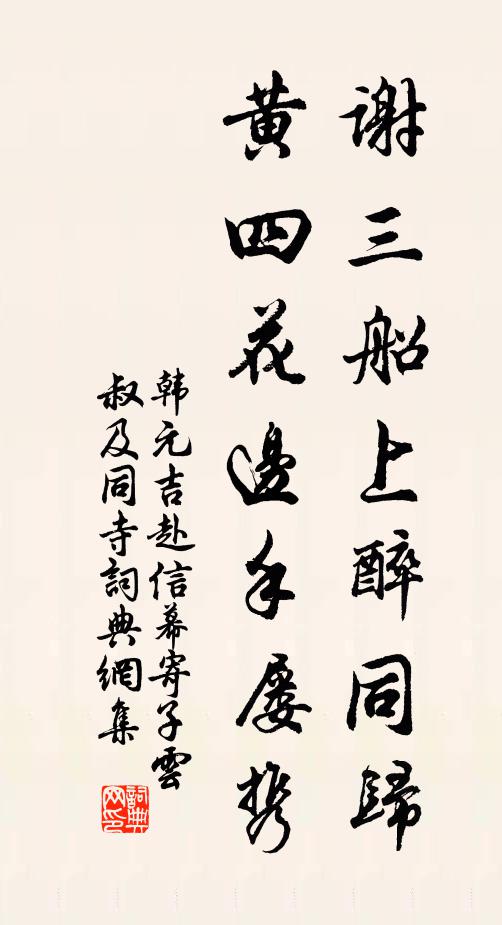 谢三船上醉同歸
黄四花邊手屡携
韩元吉赴信幕寄子雲
叔及同寺詞典網集
詞典
网印